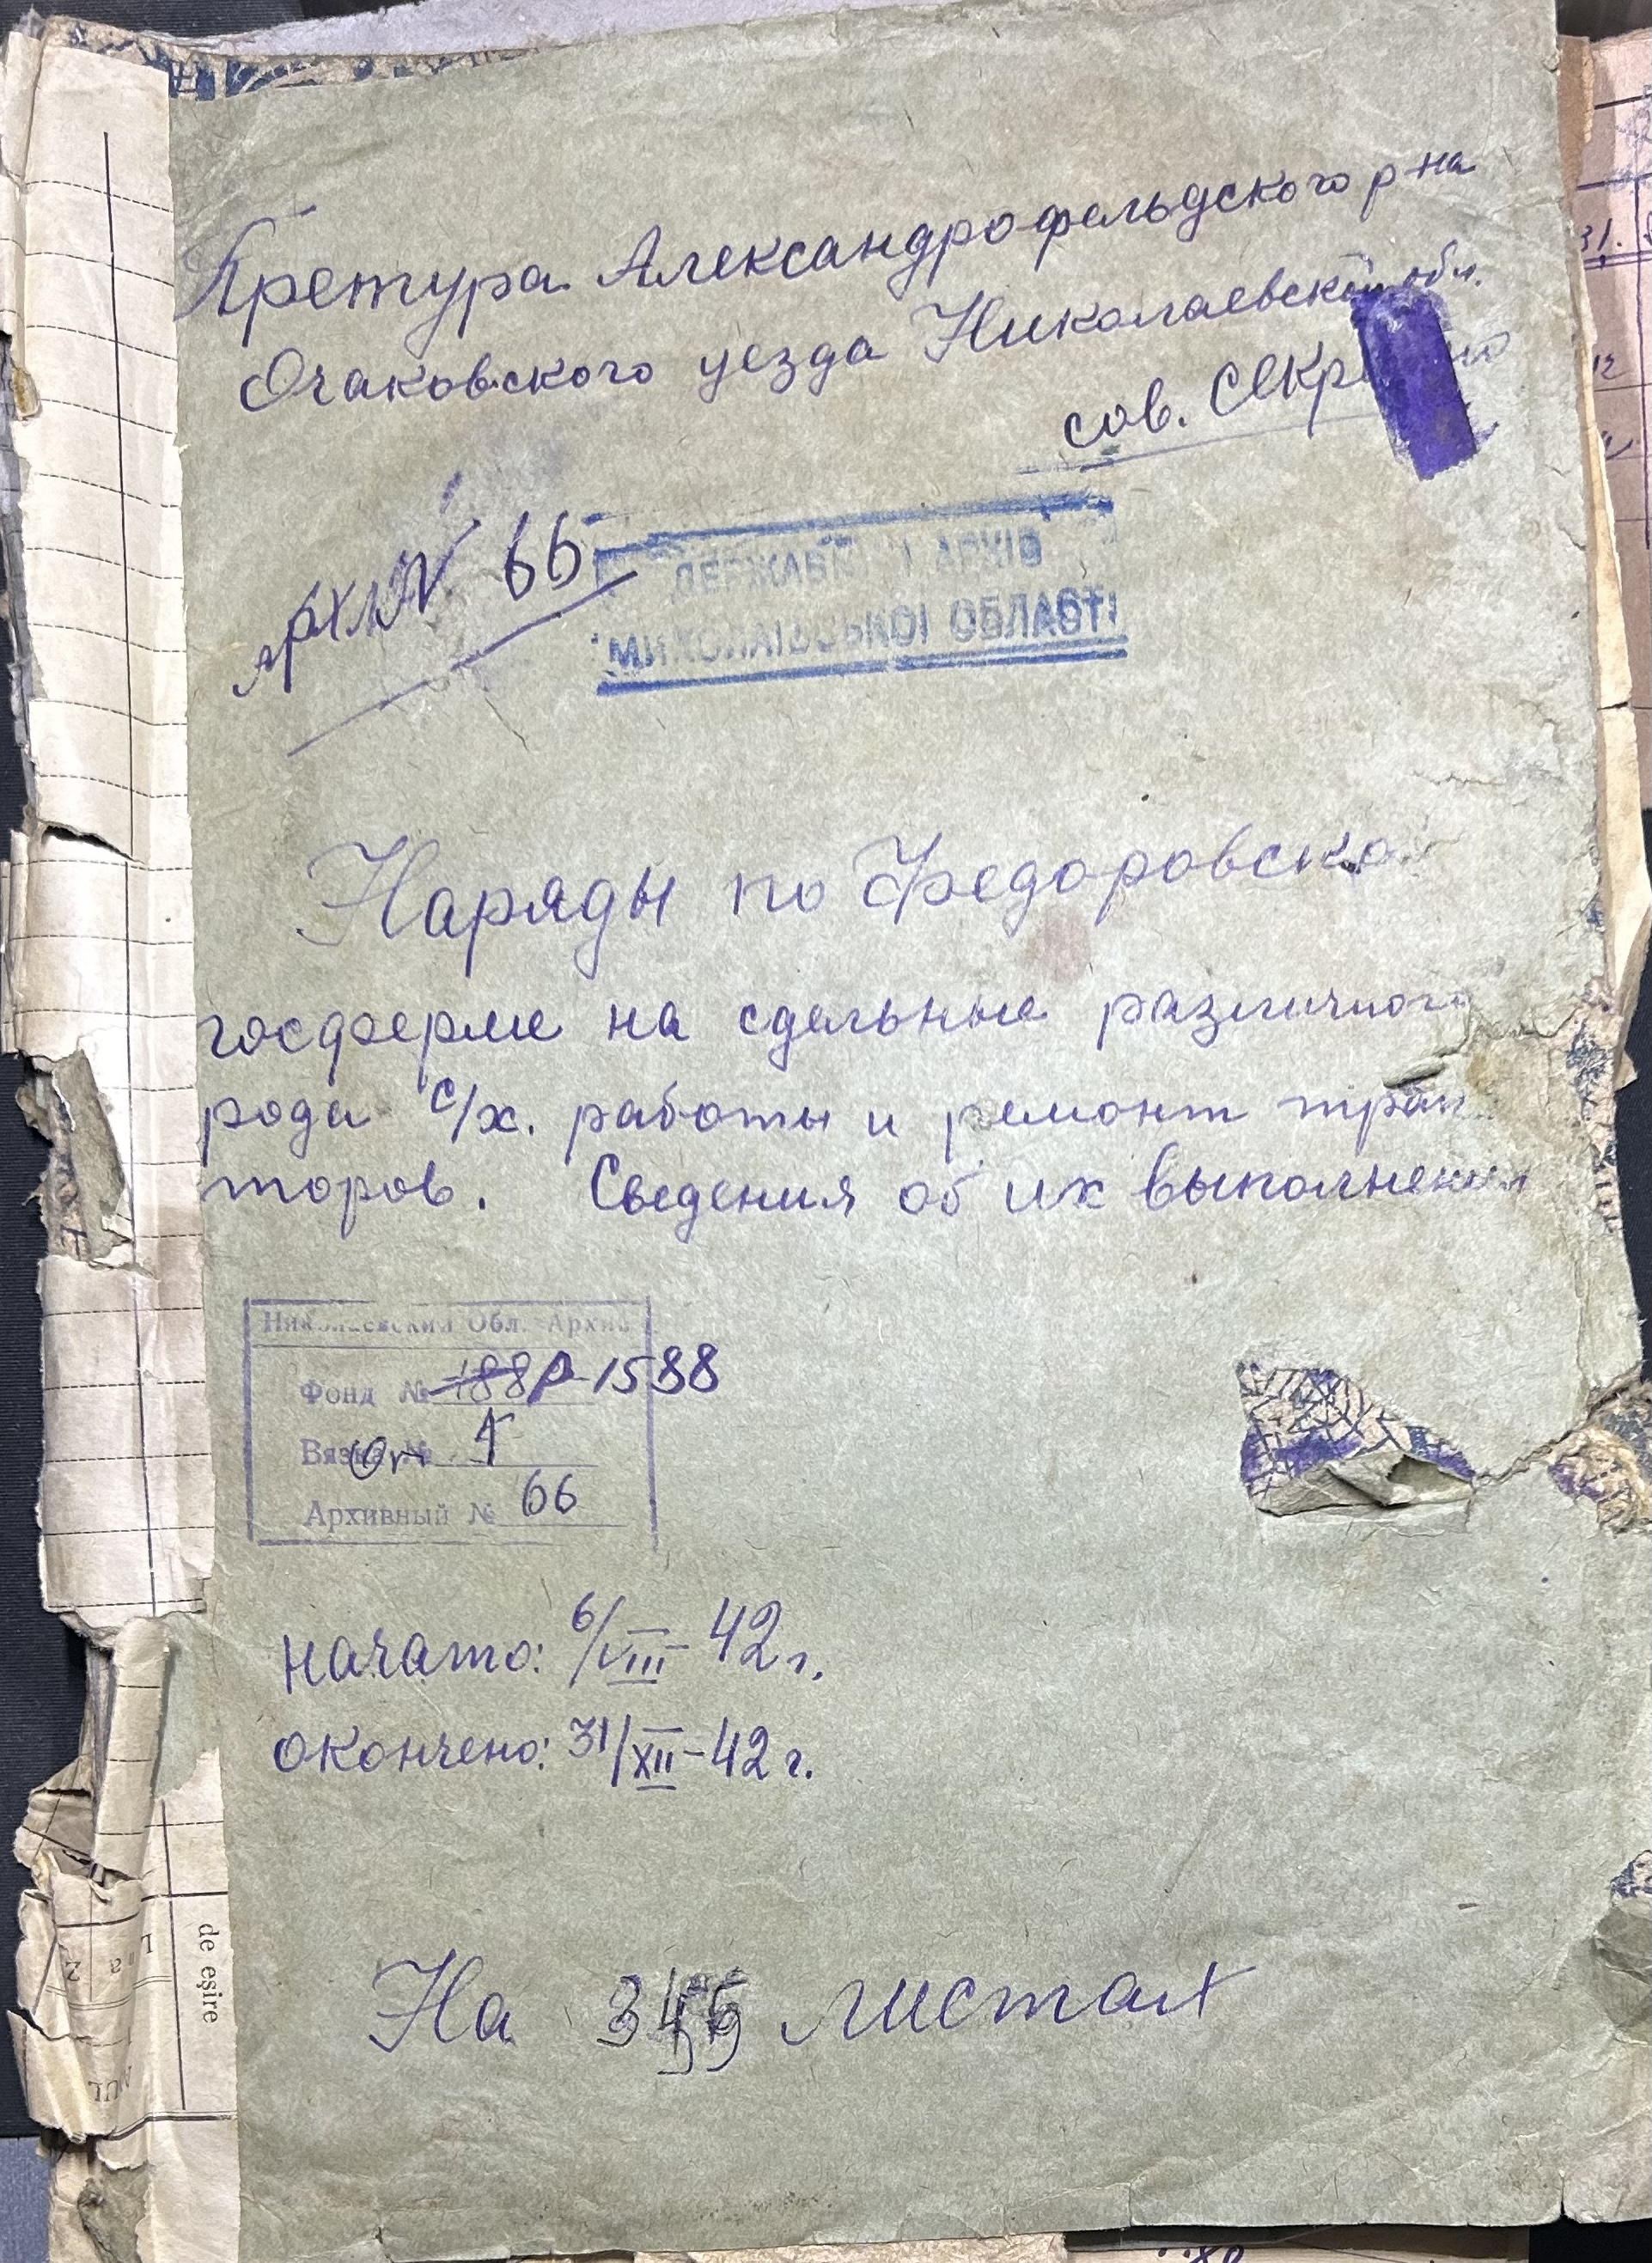 Претура Александрофельдского р-на
Очаковского уезда Николаевской обл.
сов. секретно
арх. № 66
ДЕРЖАВНИЙ АРХІВ
МИКОЛАЇВСЬКОЇ ОБЛАСТІ
Наряды по Федоровско
госферме на сдельные различного
рода с/х. работы и ремонт трак
торов. Сведения об их выполнении
Николаевский Обл. Архив
Фонд № 188 Р-1588
Вязка № Оп 1
Архивный № 66
начато: 6/VIII-42 г.
окончено: 31/XII-42 г.
На листах
de eșire